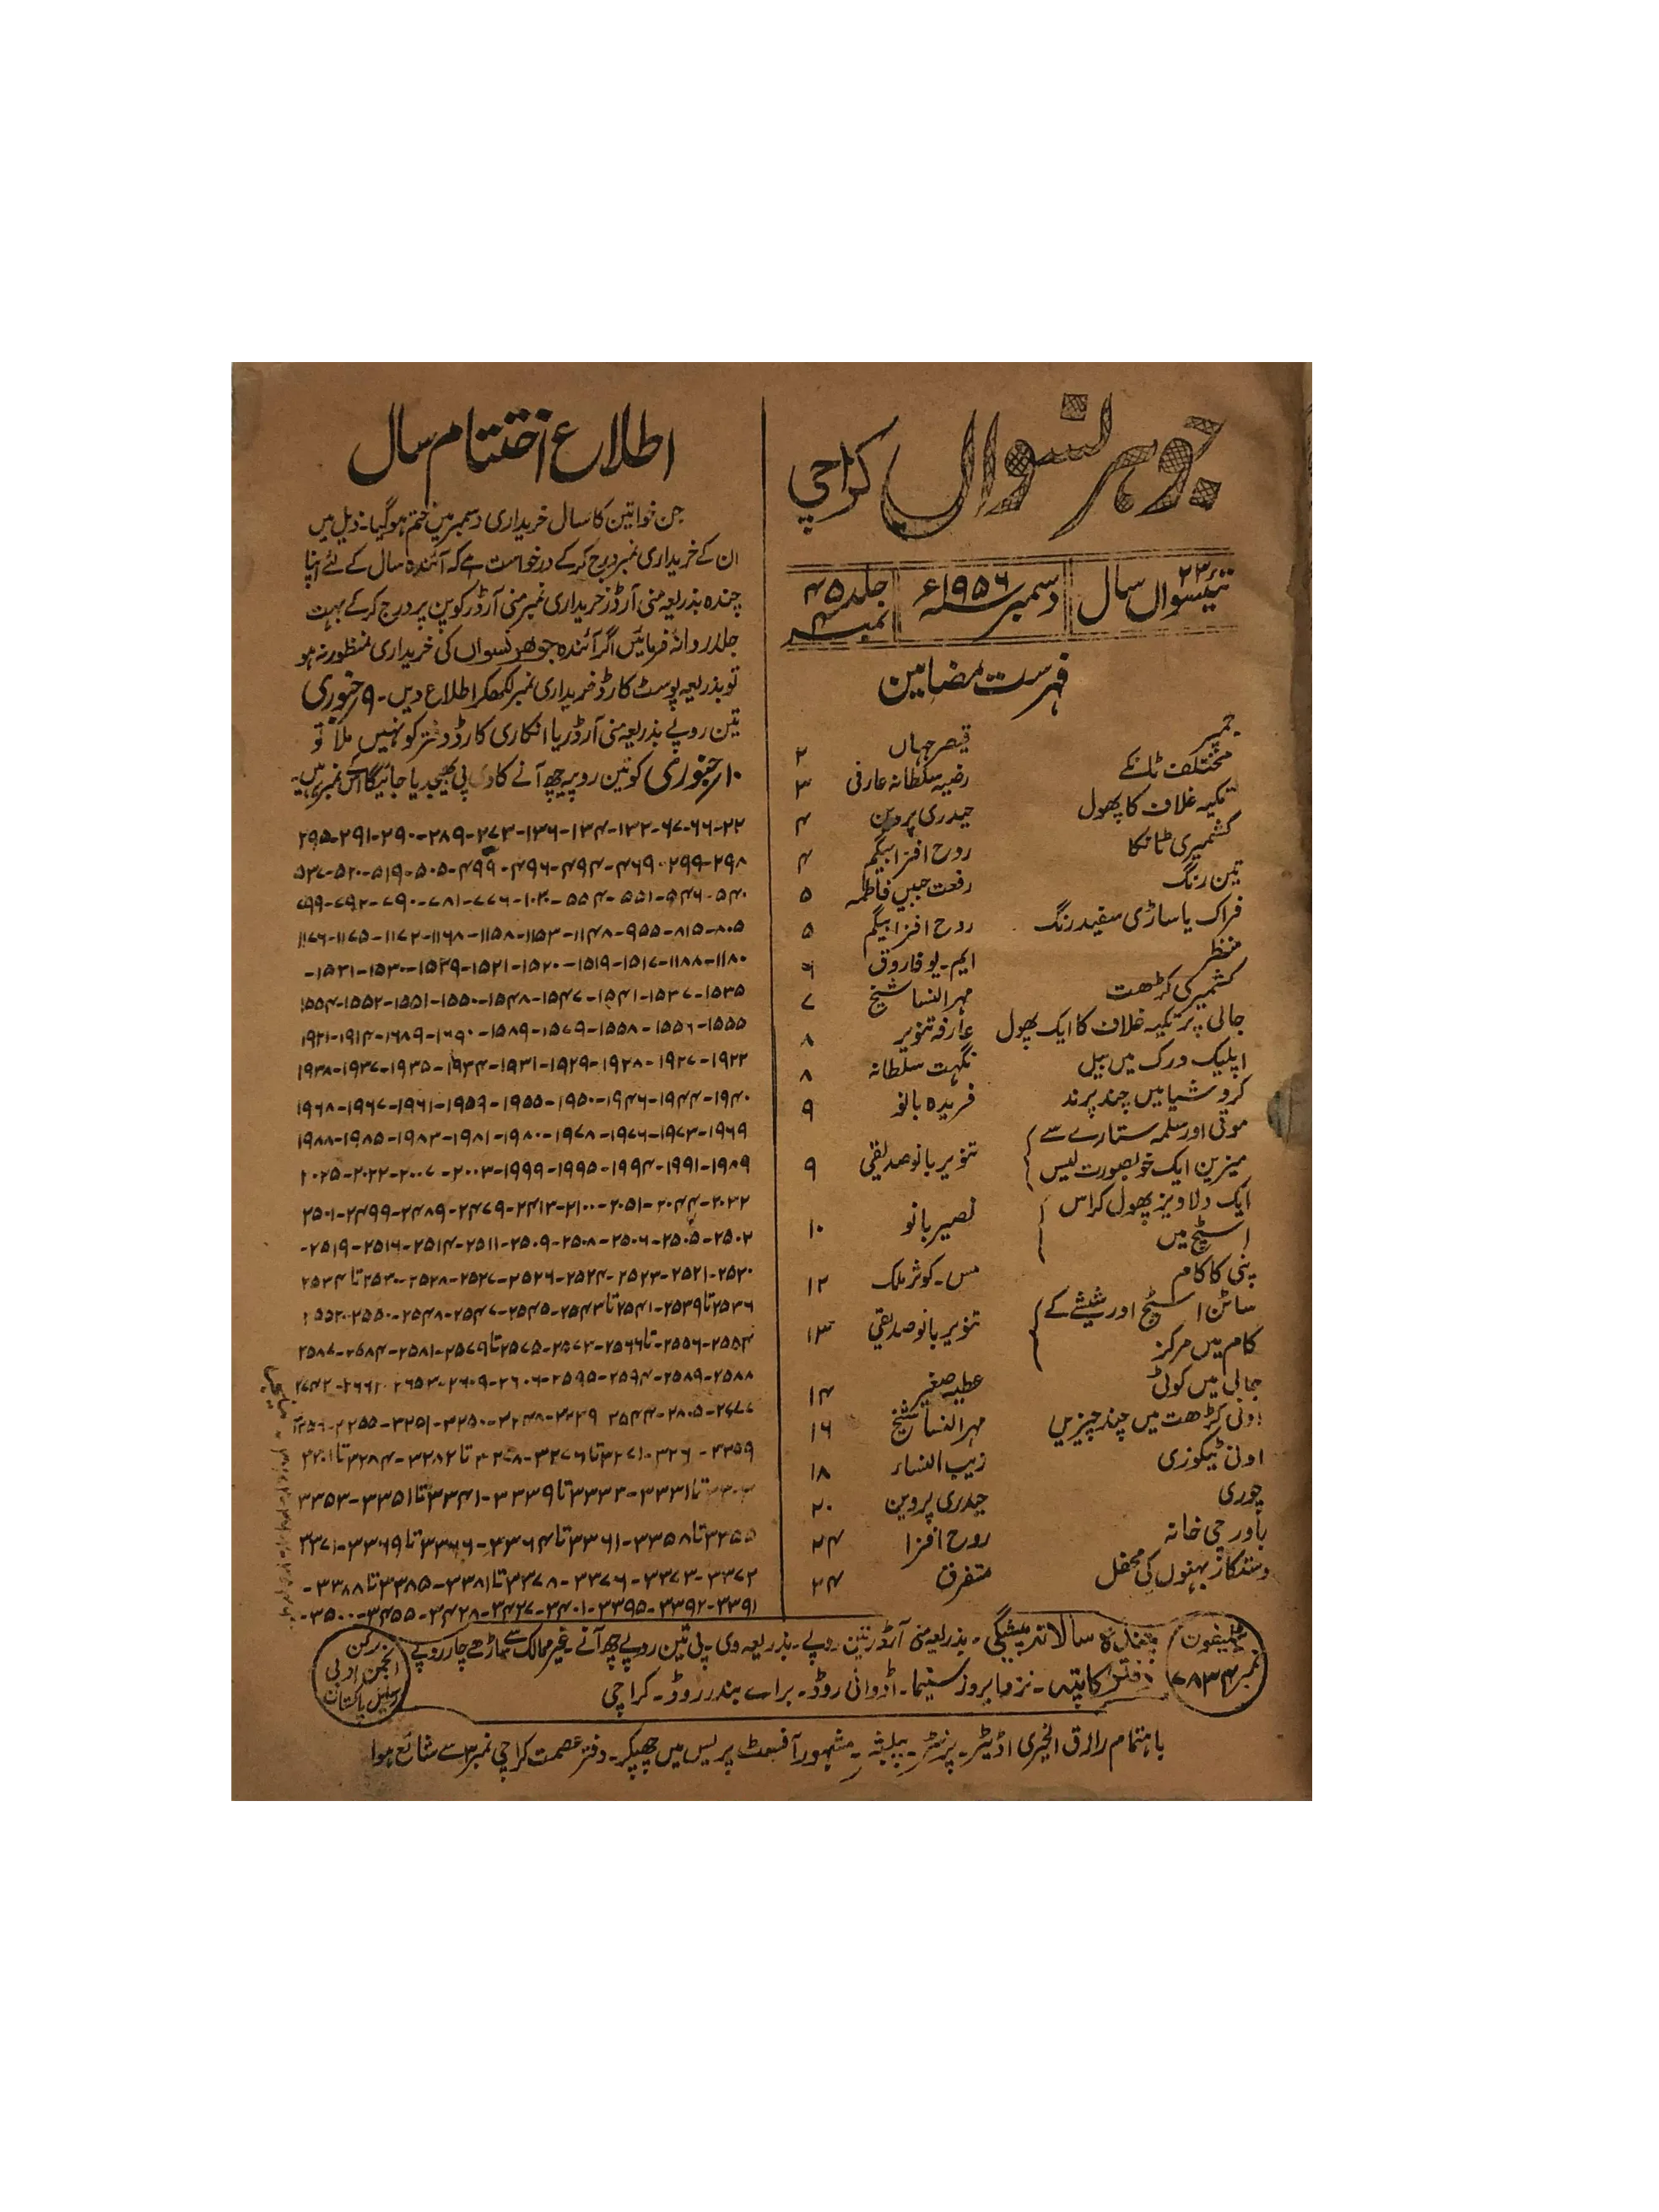 جوہر نسواں کراچی
تیئسواں سال ۲۳
دسمبر سنہ ۱۹۵۶ء
جلد ۴۵
نمبر
فہرست مضامین
جمپر قیصر جہاں ۲
مختلف ٹانکے رضیہ سلطانہ عارفی ۳
تکیہ غلاف کا پھول حیدری پروین ۴
کشمیری ٹانکا روح افزا بیگم ۴
تین رنگ رفعت جبیں فاطمہ ۵
فراک یا ساڑی سفید رنگ روح افزا بیگم ۵
منظر ایم۔ یو فاروقی ۶
کشمیر کی کڑھت مہر النسا شیخ ۷
جالی پر تکیہ غلاف کا ایک پھول عارفہ تنویر ۸
اپلیک ورک میں بیل نگہت سلطانہ ۸
کروشیا میں چند پرند فریدہ بانو ۹
موتی اور سلمہ ستارے سے
مزین ایک خوبصورت لیس تنویر بانو صدیقی ۹
ایک دلاویز پھول کراس
اسٹیچ میں نصیر بانو ۱۰
پنی کا کام مس۔ کوثر ملک ۱۲
ساٹن اسٹیچ اور شیشے کے
کام میں مرکز تنویر بانو صدیقی ۱۳
جالی میں کوٹی عطیہ صغیر ۱۴
اونی کڑھت میں چند چیزیں مہر النسا شیخ ۱۶
اونی ٹیکوزی زیب النساء ۱۸
چوری حیدری پروین ۲۰
باورچی خانہ روح افزا ۲۴
دستکار بہنوں کی محفل متفرق ۲۴
اطلاع اختتام سال
جن خواتین کا سال خریداری دسمبر میں ختم ہو گیا۔ ذیل میں
ان کے خریداری نمبر درج کر کے درخواست ہے کہ آئندہ سال کے لئے اپنا
چندہ بذریعہ منی آرڈر خریداری نمبر منی آرڈر کوپن پر درج کر کے بہت
جلد روانہ فرمائیں اگر آئندہ جوھر نسواں کی خریداری منظور نہ ہو
تو بذریعہ پوسٹ کارڈ خریداری نمبر لکھکر اطلاع دیں۔ ۹ر جنوری
تین روپے بذریعہ منی آرڈر یا انکاری کارڈ دفتر کو نہیں ملا تو
۱۰ر جنوری کو تین روپیہ چھ آنے کا وی پی بھیجدیا جائیگا نمبر یہ ہیں۔
۲۲-۶۶-۶۷-۱۳۲-۱۳۴-۱۳۶-۲۷۳-۲۸۹-۲۹۰-۲۹۱-۲۹۵
۲۹۸-۲۹۹-۴۶۹-۴۹۴-۴۹۶-۴۹۹-۵۰۵-۵۱۹-۵۲۰-۵۲۷
۵۴۰-۵۴۶-۵۵۱-۵۵۴-۷۷۶-۷۸۱-۷۹۰-۷۹۲-۷۹۹
۸۰۵-۸۱۵-۹۵۵-۱۱۴۸-۱۱۵۳-۱۱۵۸-۱۱۶۸-۱۱۷۲-۱۱۷۵-۱۱۷۶
۱۱۸۰-۱۱۸۸-۱۵۱۷-۱۵۱۹-۱۵۲۰-۱۵۲۱-۱۵۲۹-۱۵۳۰-۱۵۳۱-
۱۵۳۵-۱۵۳۷-۱۵۴۱-۱۵۴۷-۱۵۴۸-۱۵۵۰-۱۵۵۱-۱۵۵۲-۱۵۵۴
۱۵۵۵-۱۵۵۶-۱۵۵۸-۱۵۷۹-۱۵۸۹-۱۶۹۰-۱۶۸۹-۱۹۱۴-۱۹۲۱
۱۹۲۲-۱۹۲۷-۱۹۲۸-۱۹۲۹-۱۹۳۱-۱۹۳۴-۱۹۳۵-۱۹۳۷-۱۹۳۸
۱۹۴۰-۱۹۴۴-۱۹۴۶-۱۹۵۰-۱۹۵۵-۱۹۵۹-۱۹۶۱-۱۹۶۷-۱۹۶۸
۱۹۶۹-۱۹۷۳-۱۹۷۶-۱۹۷۸-۱۹۸۰-۱۹۸۱-۱۹۸۳-۱۹۸۵-۱۹۸۸
۱۹۸۹-۱۹۹۱-۱۹۹۴-۱۹۹۵-۱۹۹۹-۲۰۰۳-۲۰۰۷-۲۰۲۲-۲۰۲۵
۲۰۳۲-۲۰۴۴-۲۰۵۱-۲۱۰۰-۲۴۱۳-۲۴۷۹-۲۴۸۹-۲۴۹۹-۲۵۰۱
۲۵۰۲-۲۵۰۵-۲۵۰۶-۲۵۰۸-۲۵۰۹-۲۵۱۱-۲۵۱۴-۲۵۱۶-۲۵۱۹-
۲۵۲۰-۲۵۲۱-۲۵۲۳-۲۵۲۴-۲۵۲۶-۲۵۲۷-۲۵۲۸-۲۵۳۰ تا ۲۵۳۴
۲۵۳۶ تا ۲۵۳۹-۲۵۴۱ تا ۲۵۴۳-۲۵۴۵-۲۵۴۷-۲۵۴۸-۲۵۵۰-۲۵۵۲
۲۵۵۴-۲۵۵۶ تا ۲۵۶۶-۲۵۷۳-۲۵۷۵ تا ۲۵۷۹-۲۵۸۱-۲۵۸۴-۲۵۸۷
۲۵۸۸-۲۵۸۹-۲۵۹۴-۲۵۹۵-۲۶۰۶-۲۶۰۹-۲۶۵۳-۲۶۶۲
۳۲۵۰-۳۲۵۱-۳۲۵۵-۳۲۵۶
۳۲۵۹-۳۲۷۱ تا ۳۲۷۶ تا ۳۲۷۸-۳۲۸۲ تا ۳۲۸۴ تا ۳۳۰۱
۳۳۳۱-۳۳۳۳ تا ۳۳۳۹-۳۳۴۱ تا ۳۳۵۱-۳۳۵۳
۳۳۵۵ تا ۳۳۵۸-۳۳۶۱ تا ۳۳۶۴-۳۳۶۶ تا ۳۳۶۹-۳۳۷۱
۳۳۷۲-۳۳۷۳-۳۳۷۶-۳۳۷۸ تا ۳۳۸۱-۳۳۸۵ تا ۳۳۸۸-
۳۳۹۱-۳۳۹۲-۳۳۹۵-۳۴۰۱-۳۴۲۷-۳۴۲۸-۳۴۵۵-۳۵۰۰-
ٹیلیفون نمبر ۷۸۳۴
چندہ سالانہ پیشگی۔ بذریعہ منی آرڈر تین روپے۔ بذریعہ وی۔ پی تین روپے چھ آنے۔ غیر ممالک سے ساڑھے چار روپے
دفتر کا پتہ۔ نزد ایروز سنیما۔ اڈوانی روڈ۔ براہ بندر روڈ۔ کراچی
رکن
انجمن ادبی
رسایل پاکستان
باہتمام رازق الخیری اڈیٹر۔ پرنٹر۔ پبلشر۔ مشہور آفسٹ پریس میں چھپکر۔ دفتر عصمت کراچی نمبر ۳ سے شائع ہوا